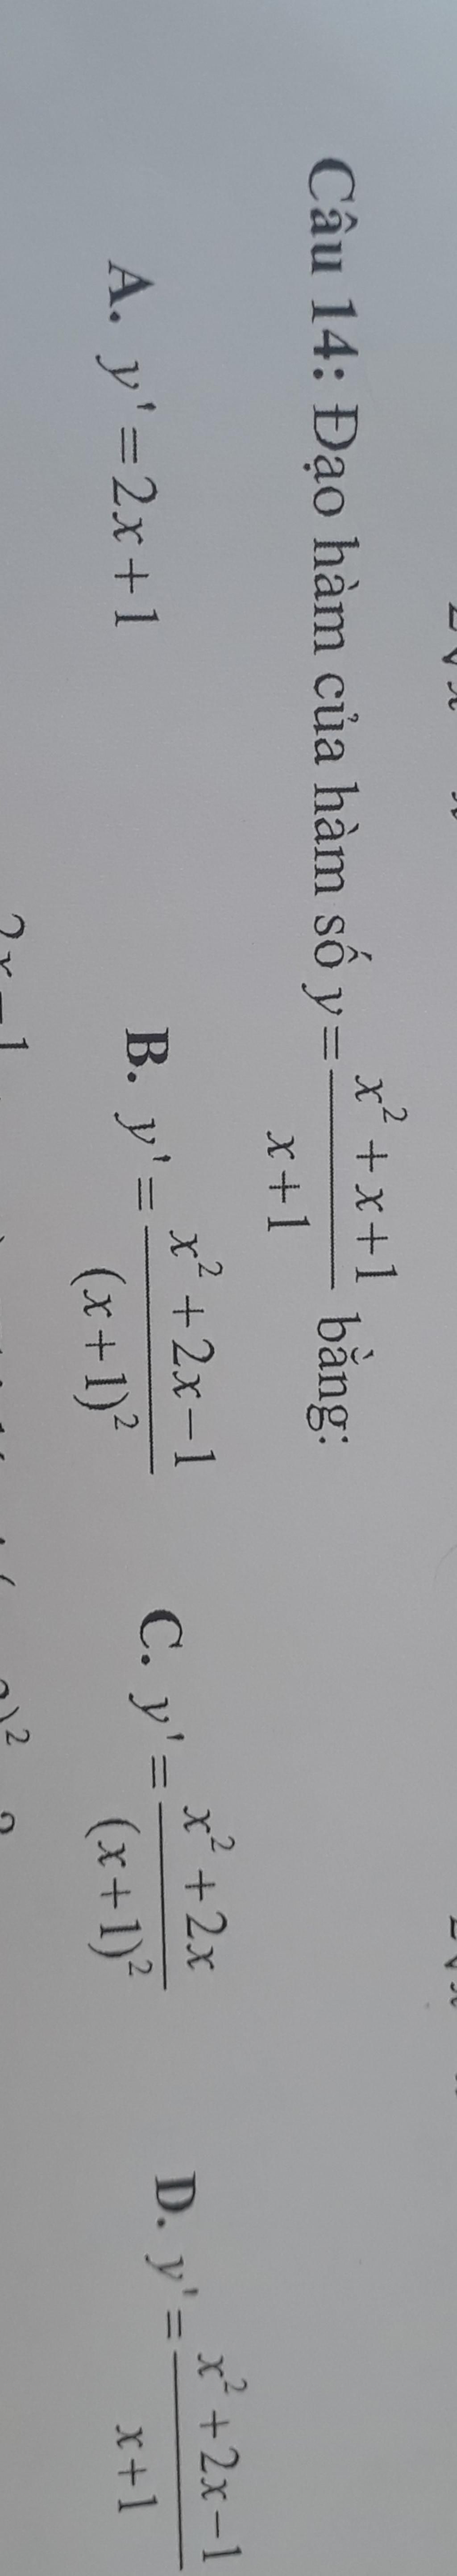 Câu 14: Đạo hàm của hàm số y = \frac{x^2 + x + 1}{x + 1} bằng:
A. y' = 2x + 1 B. y' = \frac{x^2 + 2x - 1}{(x + 1)^2} C. y' = \frac{x^2 + 2x}{(x + 1)^2} D. y' = \frac{x^2 + 2x - 1}{x + 1}